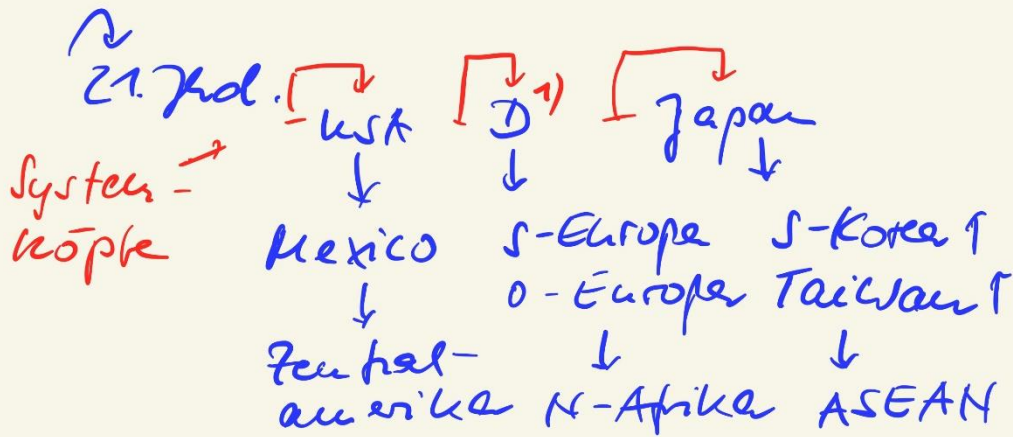 21. Jhd. USA D 1) Japan
System-
köpfe
Mexico S-Europa S-Korea ↑
O-Europa Taiwan ↑
Zentral-
amerika N-Afrika ASEAN